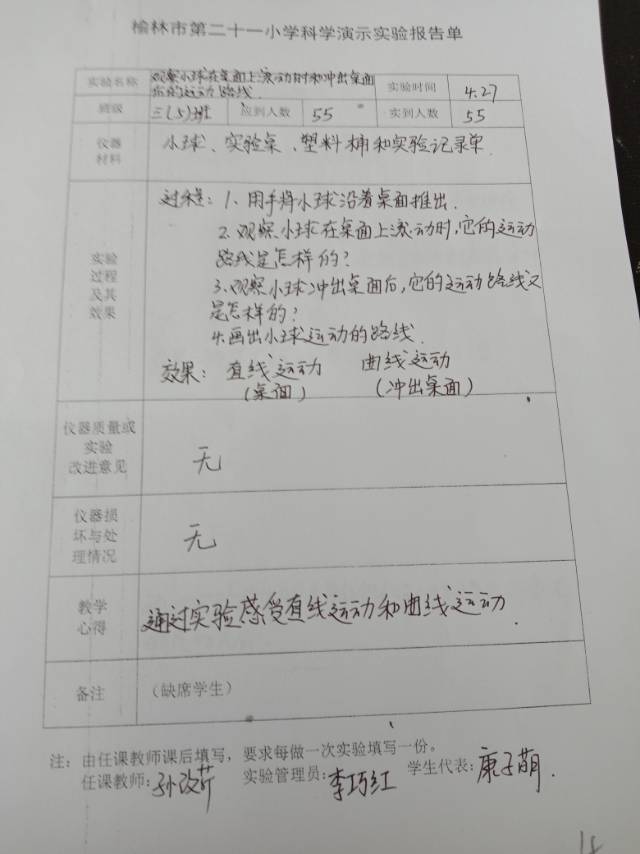 榆林市第二十一小学科学演示实验报告单
实验名称 观察小球在桌面上滚动时和冲出桌面后的运动路线. 实验时间 4.27
班级 三(5)班 应到人数 55 实到人数 55
仪器材料 小球、实验桌、塑料桶和实验记录单.
实验过程及其效果
过程: 1、用手将小球沿着桌面推出.
2.观察小球在桌面上滚动时,它的运动
路线是怎样的?
3.观察小球冲出桌面后,它的运动路线又
是怎样的?
4.画出小球运动的路线.
效果: 直线运动 曲线运动
(桌面) (冲出桌面)
仪器质量或实验改进意见 无
仪器损坏与处理情况 无
教学心得 通过实验感受直线运动和曲线运动.
备注 (缺席学生)
注: 由任课教师课后填写,要求每做一次实验填写一份。
任课教师: 孙改芹 实验管理员: 李巧红 学生代表: 康子萌.